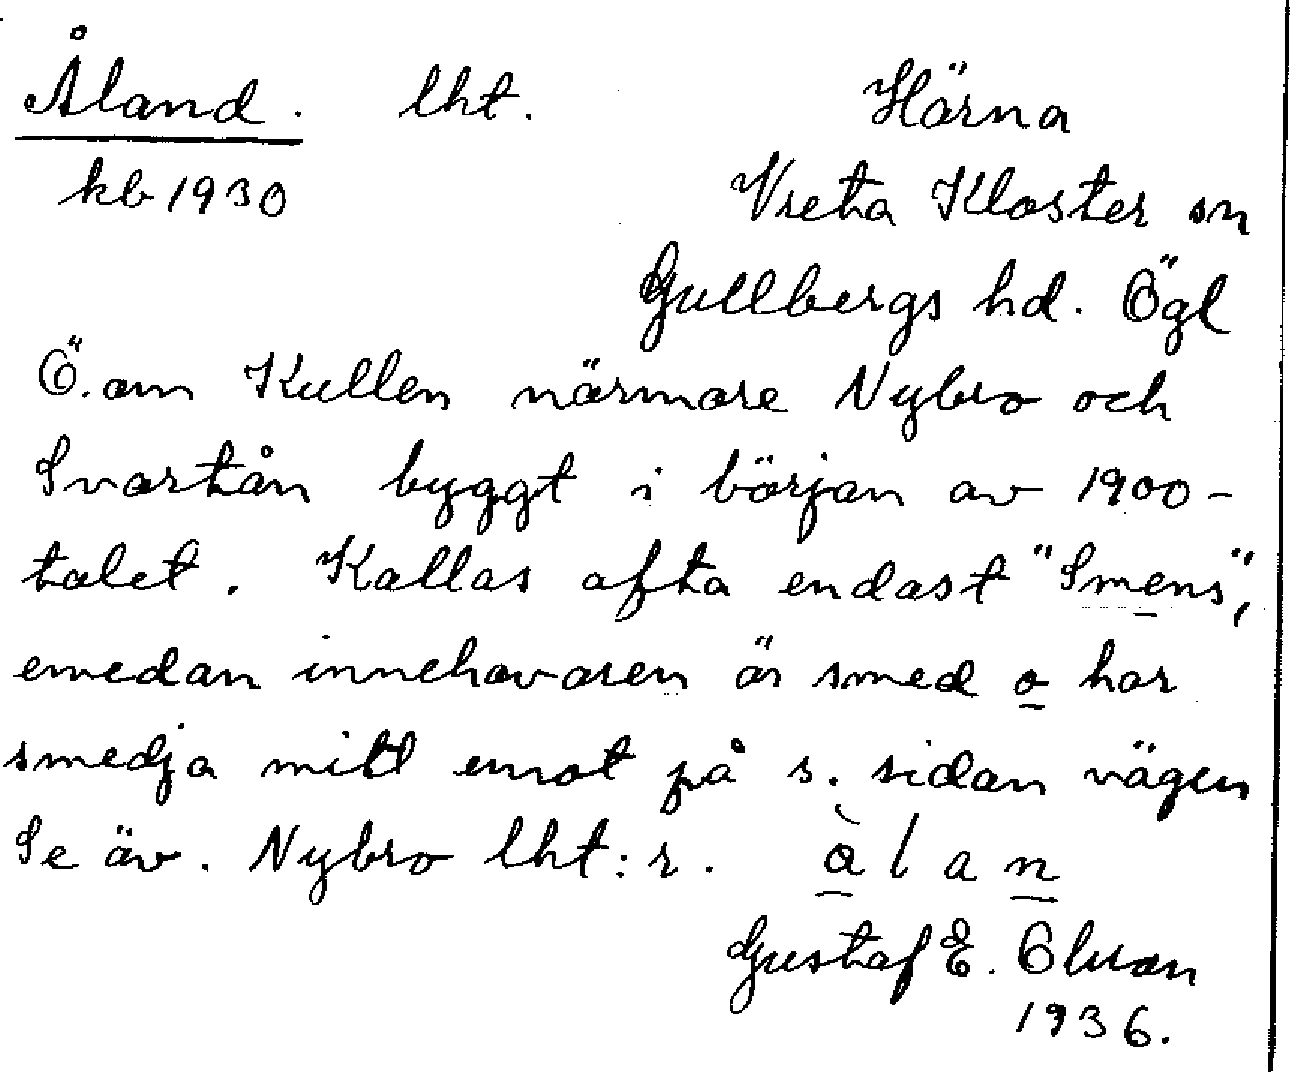 Åland. lht. Härna
kb 1930 Vreta Kloster sn
Gullbergs hd. Ögl
Ö. om Kullen närmare Nybro och
Svartån byggt i början av 1900-
talet. Kallas ofta endast "Smens",
emedan innehavaren är smed o har
smedja mitt emot på s. sidan vägen
Se äv. Nybro lht:r. àlan
Gustaf E. Olsson
1936.